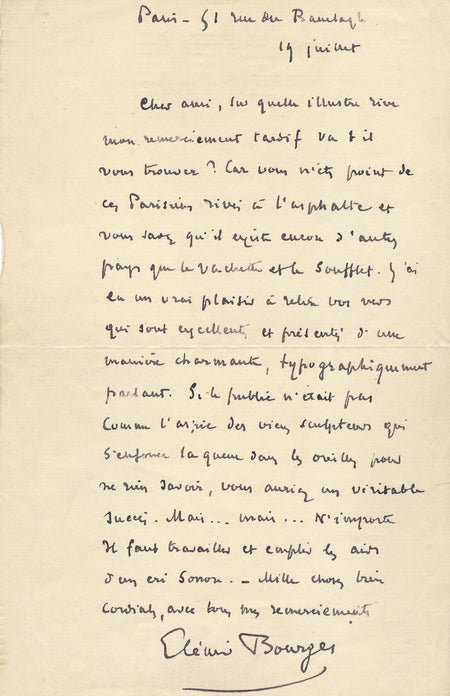 Paris - 51 rue du Ranelagh
19 juillet
Cher ami, sur quelle illustre rive
mon remerciement tardif va t il
vous trouver ? Car vous n'êtes point de
ces Parisiens rivés à l'asphalte et
vous savez qu'il existe encore d'autres
pays que le Vachette et le Soufflet. J'ai
eu un vrai plaisir à relire vos vers
qui sont excellents et présentés d'une
manière charmante, typographiquement
parlant. Si le public n'était pas
comme l'aspic des vieux sculpteurs qui
s'enfonce la queue dans les oreilles pour
ne rien savoir, vous auriez un véritable
succès. Mais... mais... N'importe
Il faut travailler et emplir les airs
d'un cri sonore. - Mille choses bien
cordiales, avec tous mes remerciements
Elémir Bourges